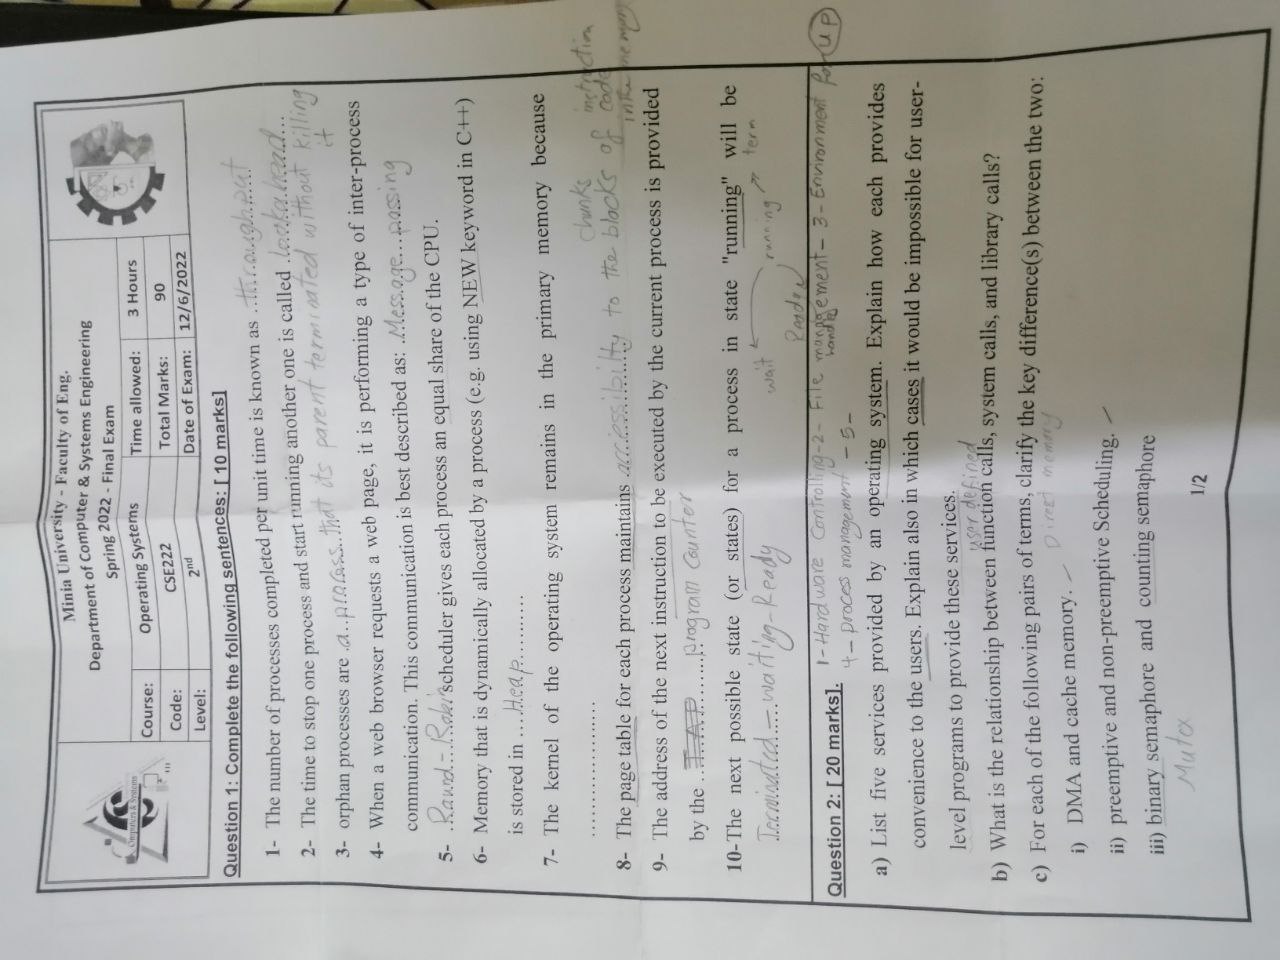 Minia University - Faculty of Eng.
Department of Computer & Systems Engineering
Spring 2022 - Final Exam
Computers & Systems
Course: Operating Systems Time allowed: 3 Hours
Code: CSE222 Total Marks: 90
Level: 2nd Date of Exam: 12/6/2022
Question 1: Complete the following sentences: [ 10 marks]
1- The number of processes completed per unit time is known as throughput
2- The time to stop one process and start running another one is called lookahead
3- orphan processes are a process that its parent terminated without killing
it
4- When a web browser requests a web page, it is performing a type of inter-process
communication. This communication is best described as: Message passing
5- Raund-Robin scheduler gives each process an equal share of the CPU.
6- Memory that is dynamically allocated by a process (e.g. using NEW keyword in C++)
is stored in ....Heap..........
7- The kernel of the operating system remains in the primary memory because
...................
chunks instruction
8- The page table for each process maintains accessibilty to the blocks of code
in the memory
9- The address of the next instruction to be executed by the current process is provided
by the program counter
10-The next possible state (or states) for a process in state "running" will be
Terminated - waiting - Ready wait running term
Ready
1- Hardware Controlling -2- File management - 3- Environment for UP
handle
Question 2: [ 20 marks]. 4- process management - 5-
a) List five services provided by an operating system. Explain how each provides
convenience to the users. Explain also in which cases it would be impossible for user-
level programs to provide these services.
user defined
b) What is the relationship between function calls, system calls, and library calls?
c) For each of the following pairs of terms, clarify the key difference(s) between the two:
Direct memory
i) DMA and cache memory.
ii) preemptive and non-preemptive Scheduling.
iii) binary semaphore and counting semaphore
Mutex
1/2